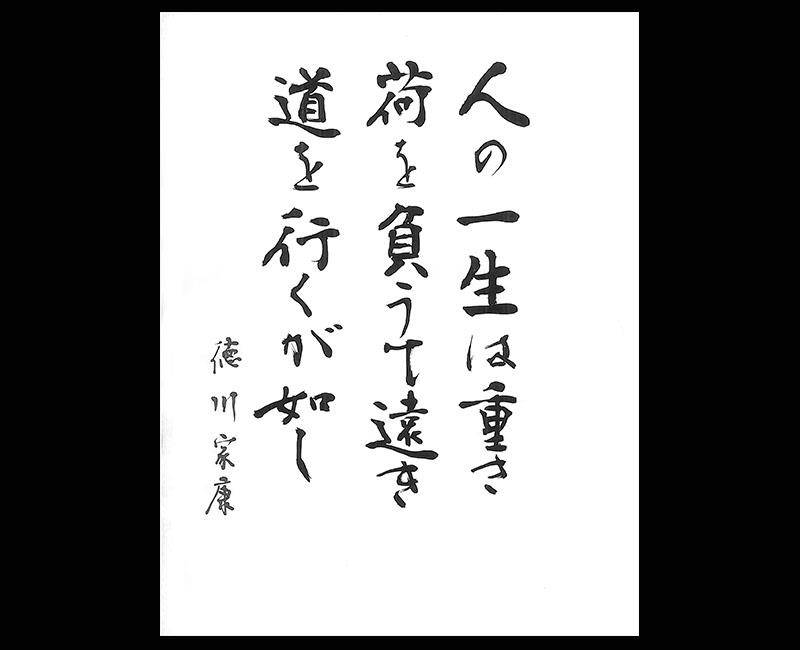 人の一生は重き
荷を負うて遠き
道を行くが如し
徳川家康